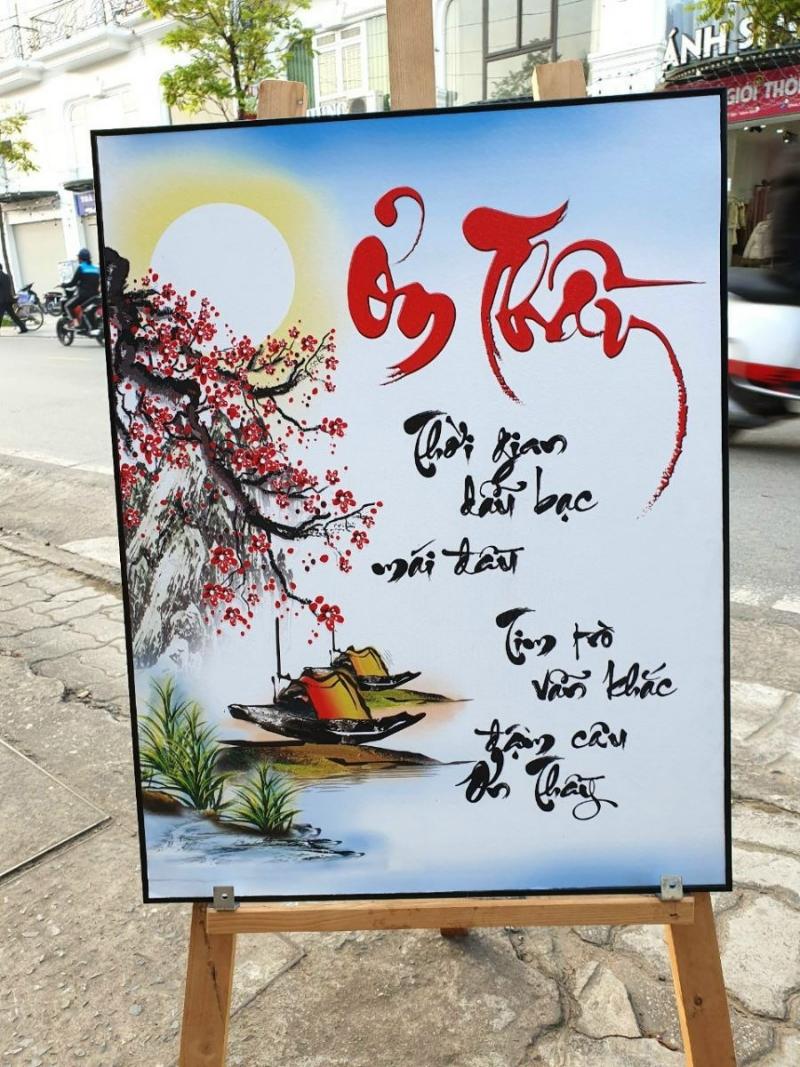 ÁNH S
GIỚI
Ơn Thầy
Thời gian
dẫu bạc
mái đầu
Tim trò
vẫn khắc
đậm câu
Ơn Thầy